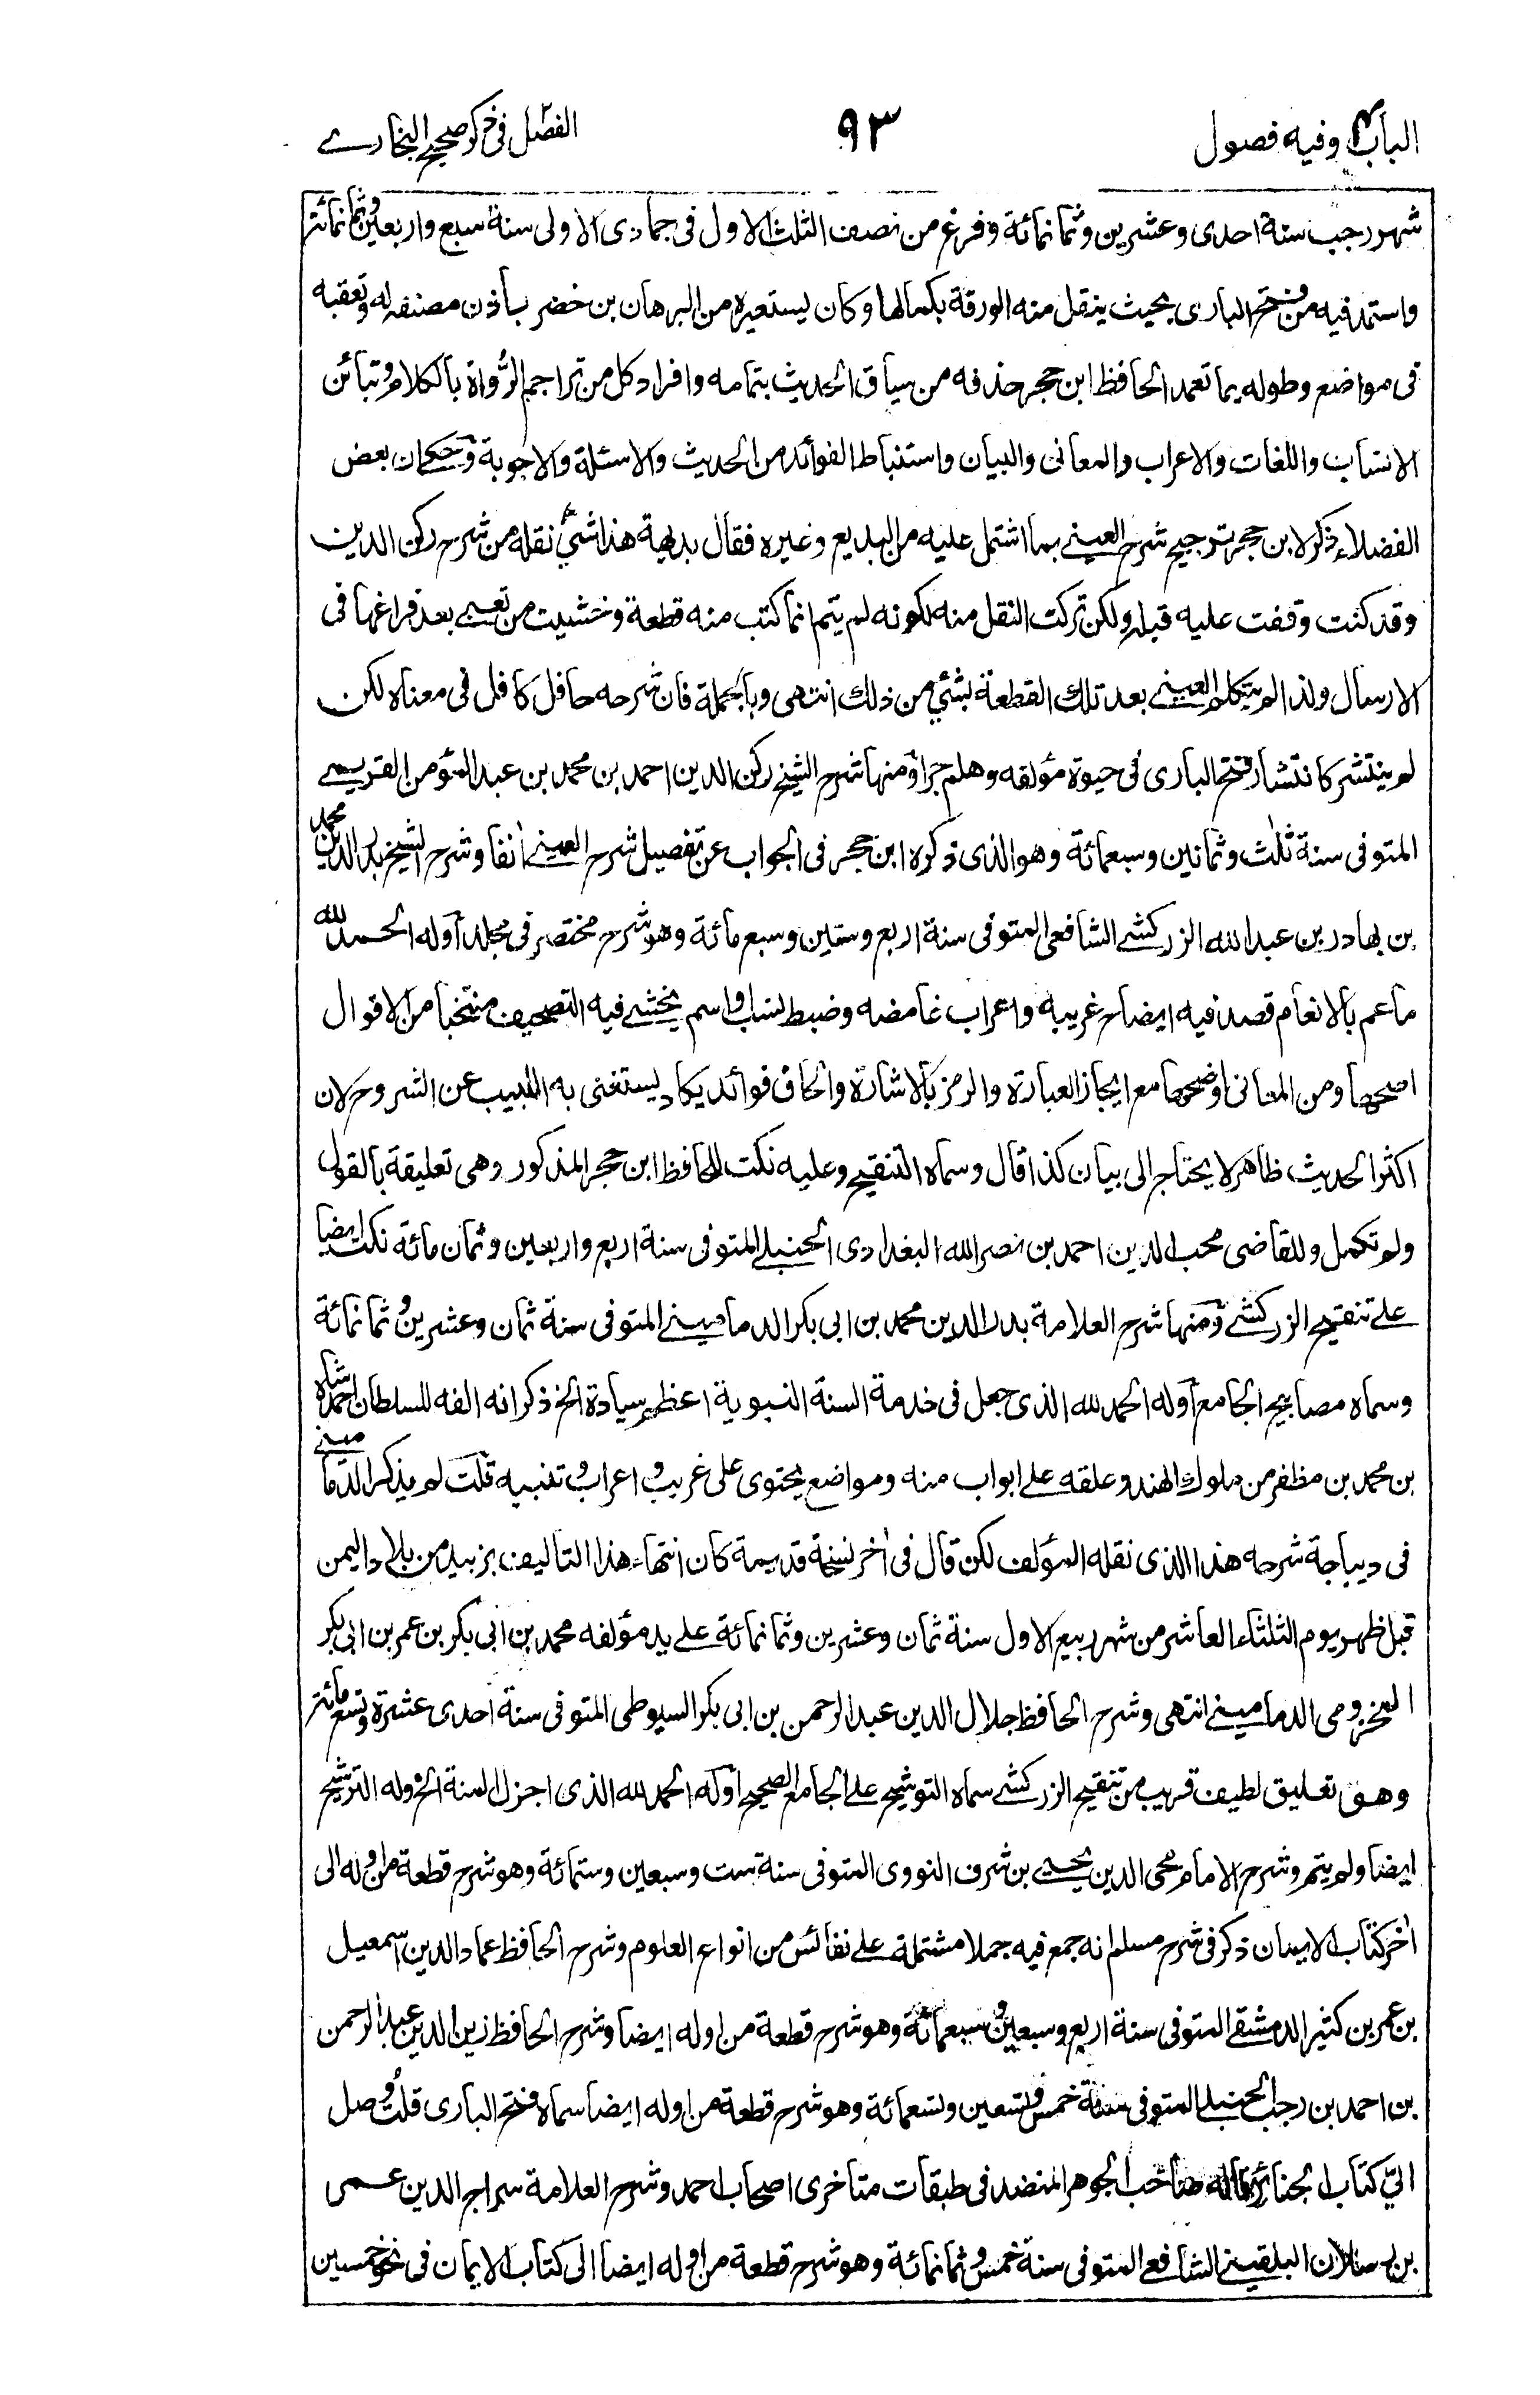 الباب٤ وفيه فصول
٩٣
الفصل فی ذکر صحیح البخاری
شهر رجب سنة احدی وعشرین وثمانمائة وفرغ من نصف الثلث الاول فی جمادی الاولی سنة سبع واربعین وثمانمائة
واستمد فیه من فتح الباری بحیث ینقل منه الورقة بکمالها وکان یستعیره من البرهان بن خضر باذن مصنفه له وتعقبه
فی مواضع وطوله بما تعمد الحافظ ابن حجر حذفه من سیاق الحدیث بتمامه وافراد کل من تراجم الرُّواة بالکلام وتبائن
الانساب واللغات والاعراب والمعانی والبیان واستنباط الفوائد من الحدیث والاسئلة والاجوبة وحکی ان بعض
الفضلاء ذکر لابن حجر ترجیح شرح العینی بما اشتمل علیه من البدیع وغیره فقال بدیهة هذا شیٔ نقله من شرح رکن الدین
وقد کنت وقفت علیه قبله ولکن ترکت النقل منه لکونه لم یتم انما کتب منه قطعة وخشیت من تعبی بعد فراغها فی
الارسال ولذا لم یتکلم العینی بعد تلك القطعة بشئ من ذلك انتهی وبالجملة فان شرحه حافل کافل فی معناه لکن
لم ینتشر کانتشار فتح الباری فی حیوة مؤلفه وهلم جرا ومنها شرح الشیخ رکن الدین احمد بن محمد بن عبد المؤمن القریمی
المتوفی سنة ثلٰث وثمانین وسبعمائة وهو الذی ذکره ابن حجر فی الجواب عن تفصیل شرح العینی اٰنفا وشرح الشیخ بدر الدین محمد
بن بهادر بن عبد الله الزرکشی الشافعی المتوفی سنة اربع وستین وسبع مائة وهو شرح مختصر فی مجلد اوله الحمد لله
ما عم بالانعام قصد فیه ایضاح غریبه واعراب غامضه وضبط نسب او اسم یخشی فیه التصحیف منتخبا من الاقوال
اصحها ومن المعانی اوضحها مع ایجاز العبارة والرمز بالاشارة والحاق فوائد یکاد یستغنی به اللبیب عن الشروح لان
اکثر الحدیث ظاهر لا یحتاج الی بیان کذا قال وسماه التنقیح وعلیه نکت للحافظ ابن حجر المذکور وهی تعلیقة بالقول
ولم تکمل وللقاضی محب الدین احمد بن نصر الله البغدادی الحنبلی المتوفی سنة اربع واربعین وثمان مائة نکت ایضا
علی تنقیح الزرکشی ومنها شرح العلامة بدر الدین محمد بن ابی بکر الدمامینی المتوفی سنة ثمان وعشرین وثمانمائة
وسماه مصابیح الجامع اوله الحمد لله الذی جعل فی خدمة السنة النبویة اعظم سیادة الخ ذکر انه الفه للسلطان احمد شاه
بن محمد بن مظفر من ملوك الهند وعلقه علی ابواب منه ومواضع یحتوی علی غریب و اعراب و تنبیه قلت لم یذکر الدمامینی
فی دیباجة شرحه هذا الذی نقله المؤلف لکن قال فی اٰخر نسخة قدیمة کان انتهاء هذا التالیف بزبید من بلاد الیمن
قبل ظهر یوم الثلثاء العاشر من شهر ربیع الاول سنة ثمان وعشرین وثمانمائة علی ید مؤلفه محمد بن ابی بکر بن عمر بن ابی بکر
المخزومی الدمامینی انتهی وشرح الحافظ جلال الدین عبد الرحمن بن ابی بکر السیوطی المتوفی سنة احدی عشرة وتسع مائة
وهو تعلیق لطیف قریب من تنقیح الزرکشی سماه التوشیح علی الجامع الصحیح اوله الحمد لله الذی اجزل السنة الخ وله الترشیح
ایضا ولم یتم وشرح الامام محی الدین یحیی بن شرف النووی المتوفی سنة ست وسبعین وستمائة وهو شرح قطعة من اوله الی
اٰخر کتاب الایمان ذکر فی شرح مسلم انه جمع فیه جملا مشتملة علی نفائس من انواع العلوم وشرح الحافظ عماد الدین اسمعیل
بن عمر بن کثیر الدمشقی المتوفی سنة اربع وسبعین وسبعمائة وهو شرح قطعة من اوله ایضا وشرح الحافظ زین الدین عبد الرحمن
بن احمد بن رجب الحنبلی المتوفی سنة خمس وتسعین وتسعمائة وهو شرح قطعة من اوله ایضا سماه فتح الباری قلت وصل
الی کتاب الجنائز قاله صاحب الجوهر المنضد فی طبقات متاخری اصحاب احمد وشرح العلامة سراج الدین عمر
بن رسلان البلقینی الشافعی المتوفی سنة خمس وثمانمائة وهو شرح قطعة من اوله ایضا الی کتاب الایمان فی نحو خمسین